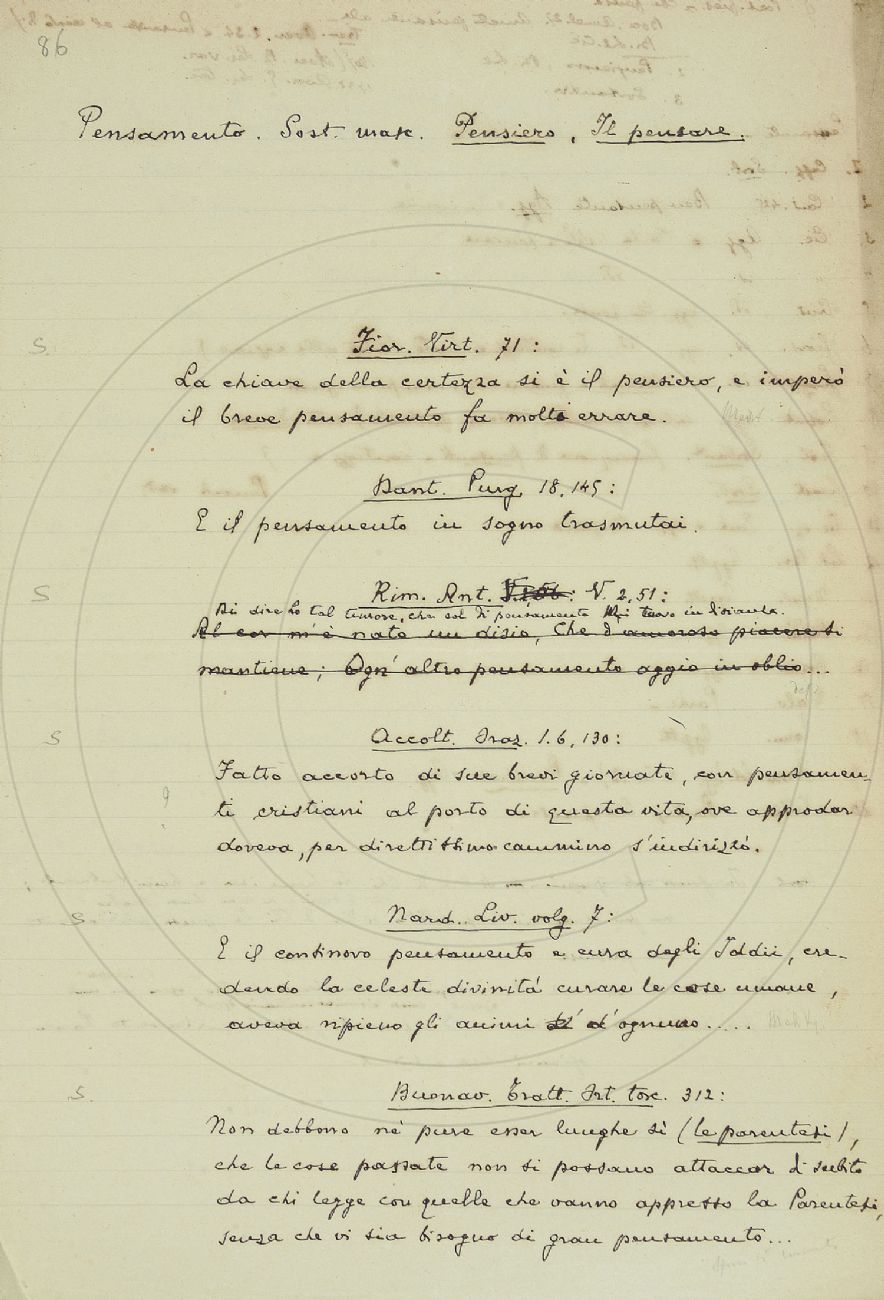 86
Pensamento. Sost. masc. Pensiero, Il pensare.
Fior. Virt. 71:
S.
La chiave della certezza si è il pensiero, e imperò
il breve pensamento fa molti errare.
Dant. Purg. 18, 145:
E il pensamento in sogno trasmutai.
S
Rim. Ant. V. 2, 51:
Di dire ho tal timore, che sol di pensamento Mi trovo in disianza.
Al cor m'è nato un disio, Che d'amoroso piacere si
mantiene; Ogn' altro pensamento aggio in oblio...
S
Accolt. Traz. 1. 6, 130:
Fatto accorto di sue brevi giornate, con pensamen-
ti cristiani al porto di questa vita, ove approdar
doveva, per direttissimo cammino s'indirizzò.
S
Nard. Liv. volg. 7:
E il continovo pensamento e cura degli Iddii, cre-
dendo la celeste divinità curare le cose umane,
aveva ripieno gli animi d'ognuno....
S.
Buonav. Tratt. Irt. tosc. 312:
Non debbono nè pure esser lunghe sì (le parentesi),
che le cose passate non si possano attaccar di subito
da chi legge con quelle che vanno appresso la Parentesi,
senza che vi sia bisogno di gran pensamento...